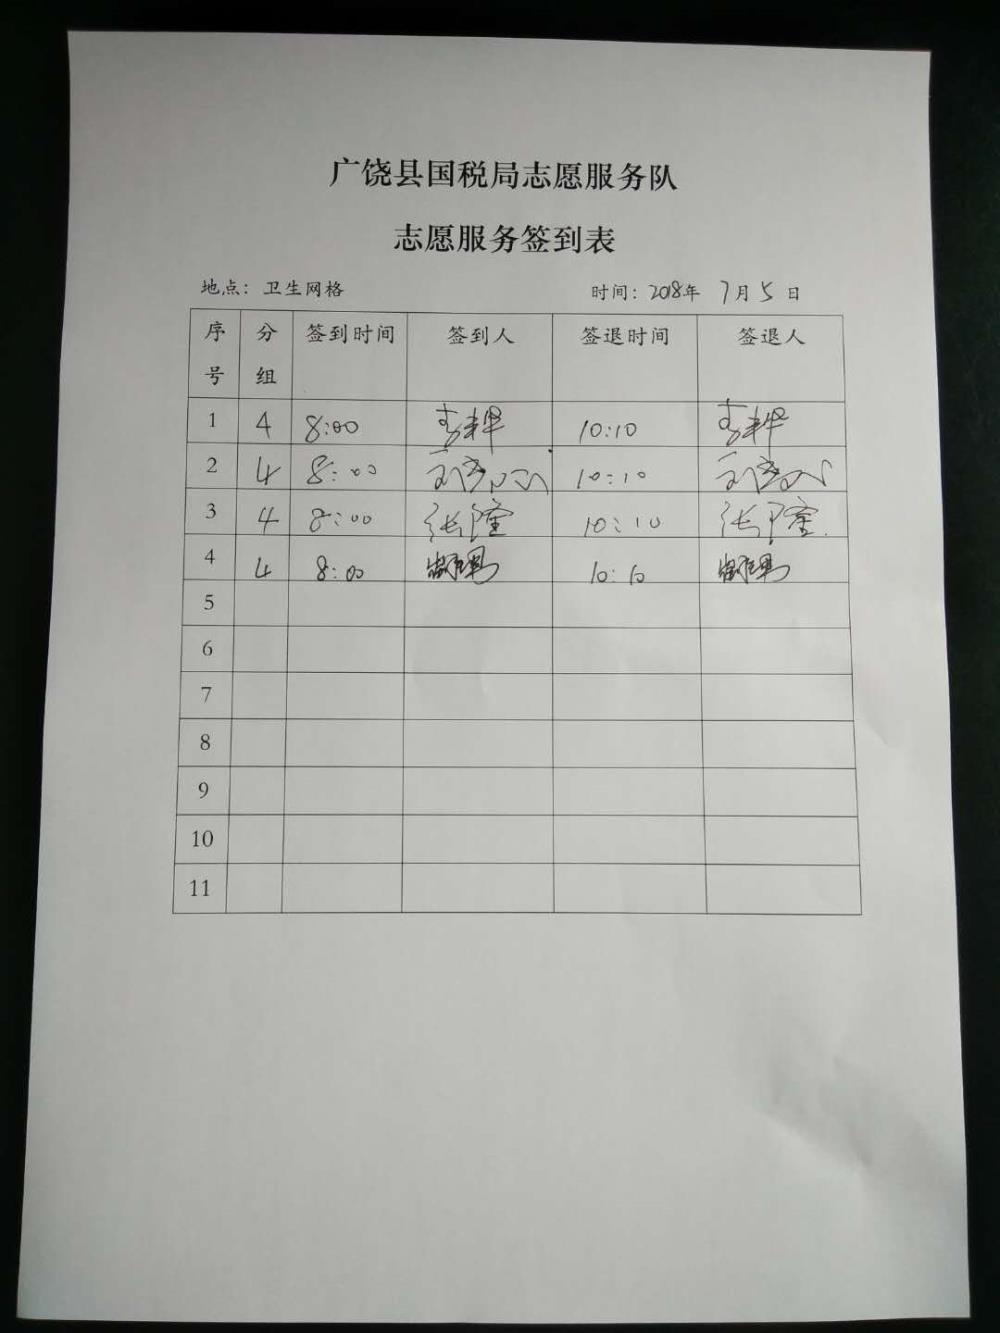 广饶县国税局志愿服务队
志愿服务签到表
地点：卫生网格 时间：2018年 7月 5 日
序号 分组 签到时间 签到人 签退时间 签退人
1 4 8:00 10:10
2 4 8:00 10:10
3 4 8:00 张隆 10:10 张隆
4 4 8:00 10:10
5
6
7
8
9
10
11